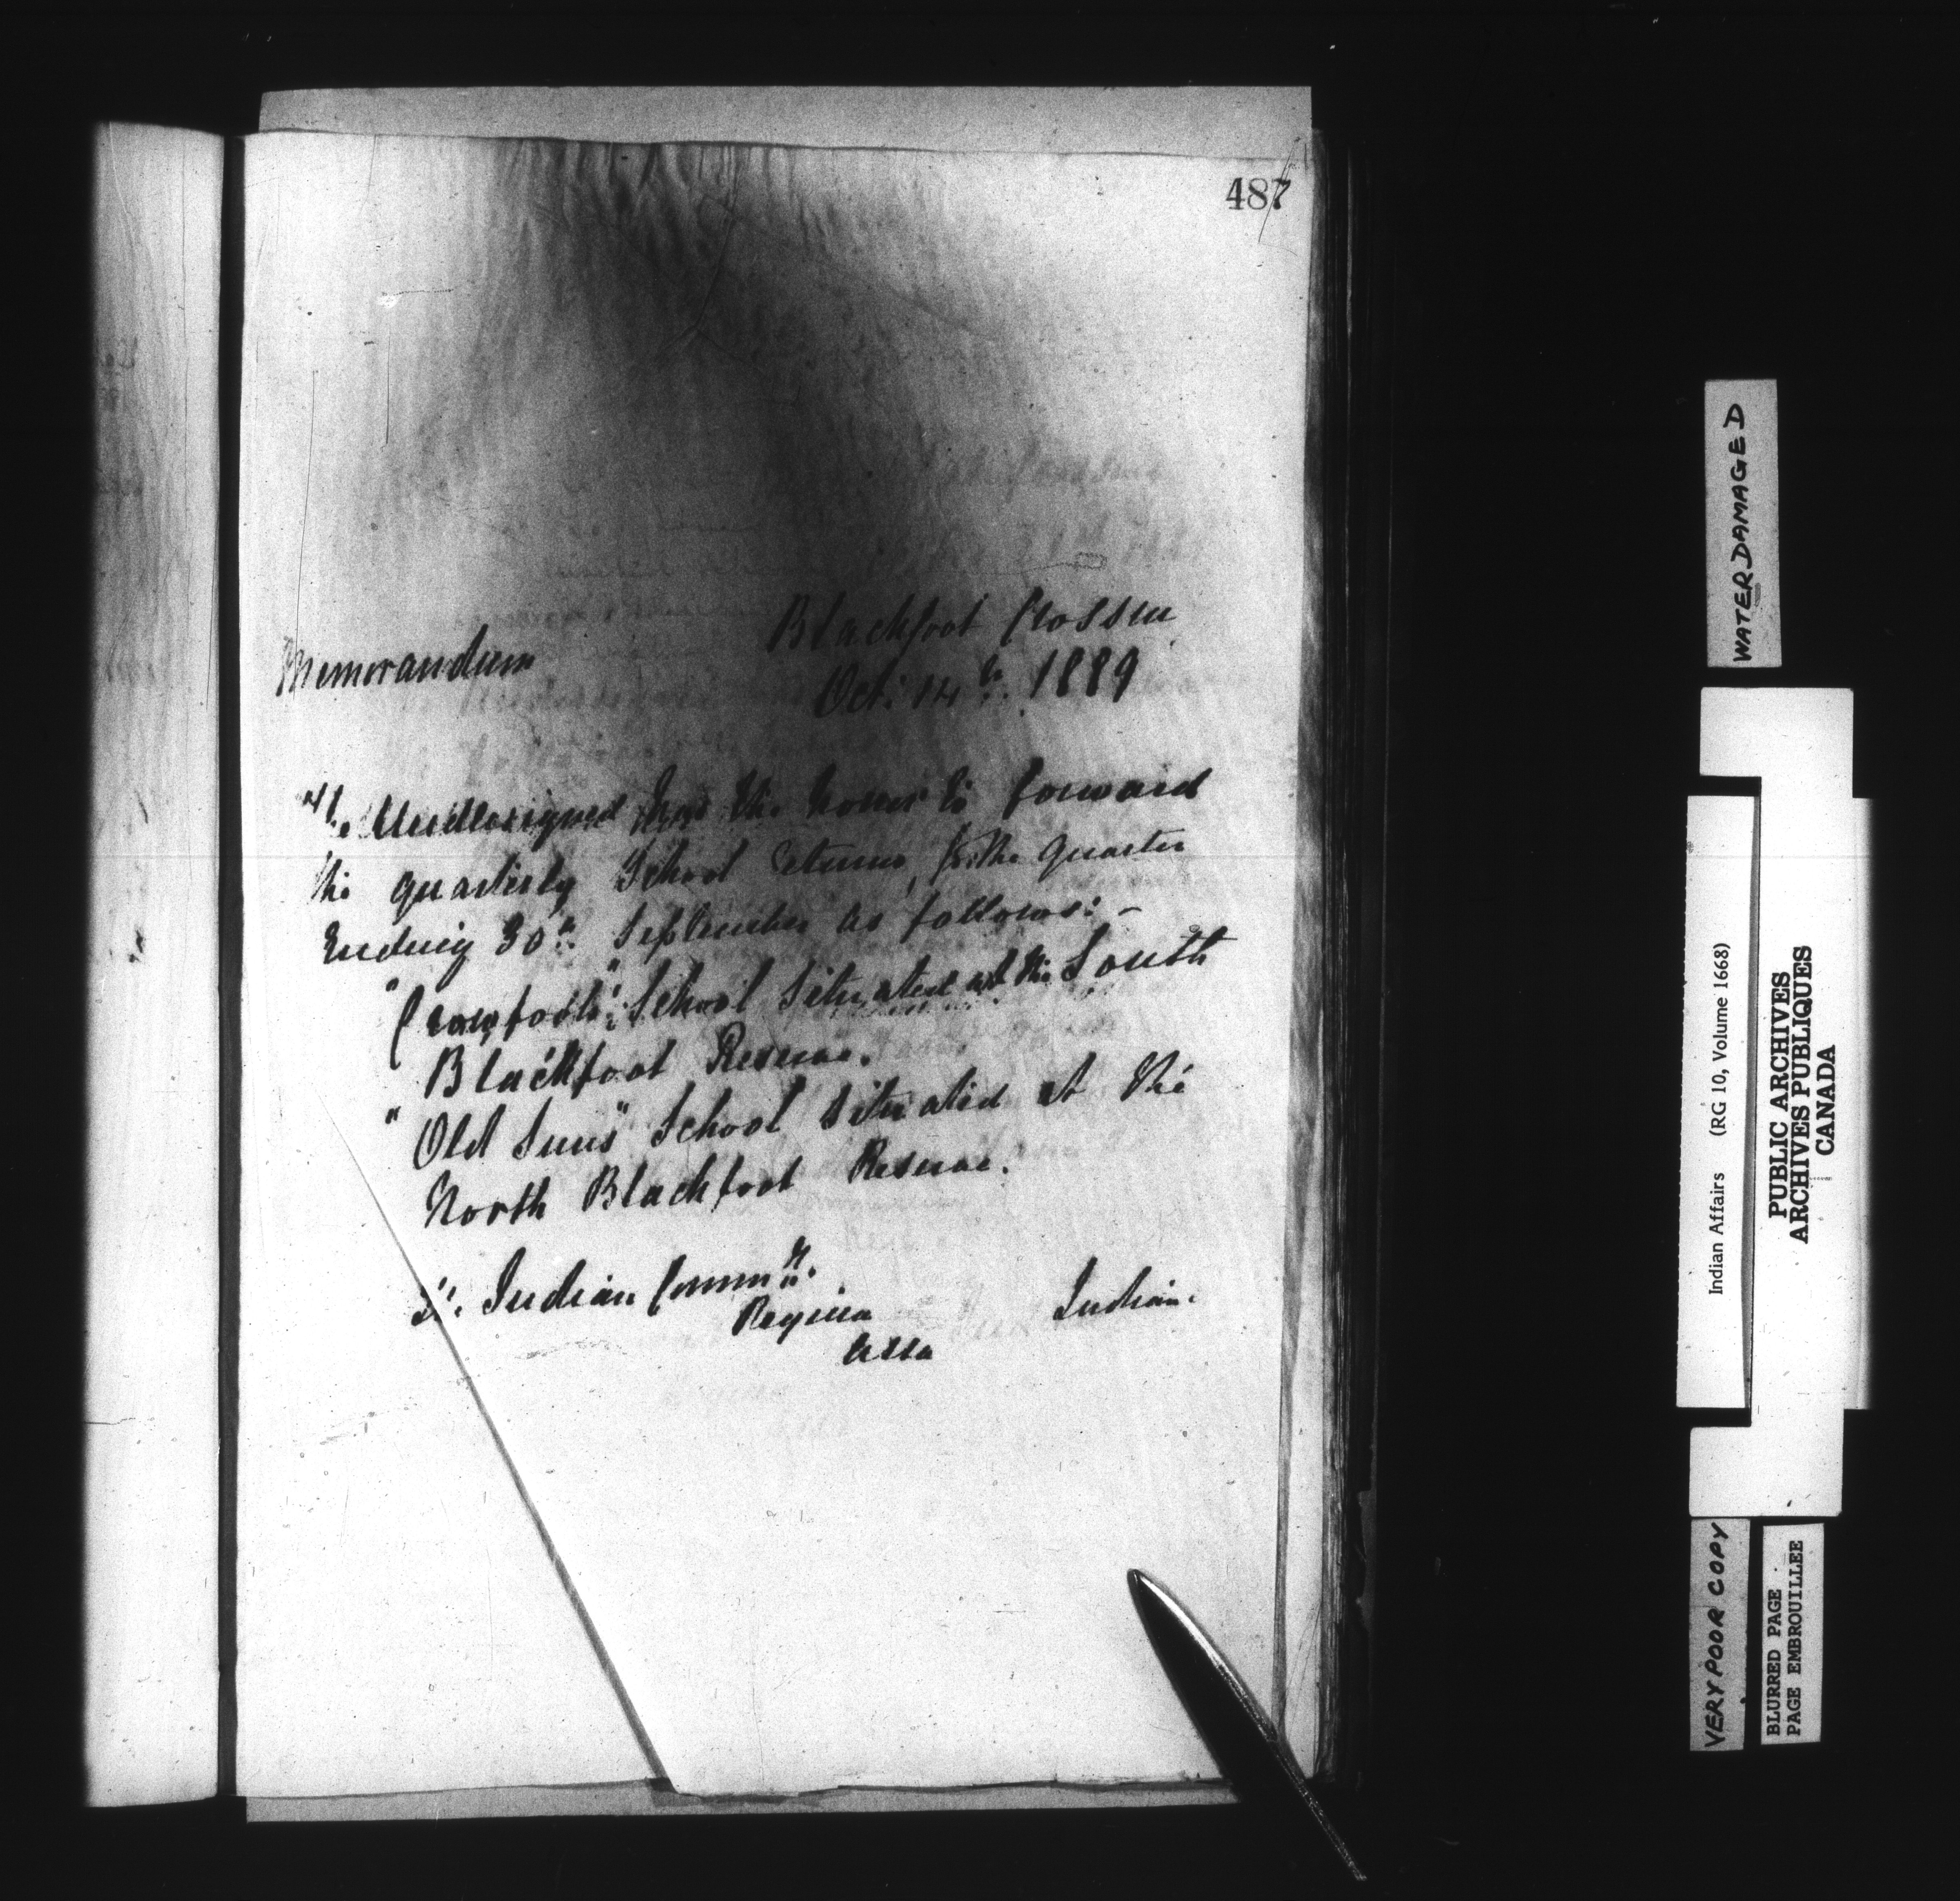 487
Blackfoot Crossin
Memorandum
Oct. 14th 1889
The Undersigned has the honor to forward
the quarterly School returns, for the quarter
Ending 30th September as follows:-
"Crowfoots" School situated at the South
Blackfoot Reserve.
"Old Suns" School situated at the
North Blackfoot Reserve.
Indian Commr.
Regina
Assa
Indian
WATER DAMAGED
Indian Affairs (RG 10, Volume 1668)
PUBLIC ARCHIVES
ARCHIVES PUBLIQUES
CANADA
VERY POOR COPY
BLURRED PAGE
PAGE EMBROUILLEE